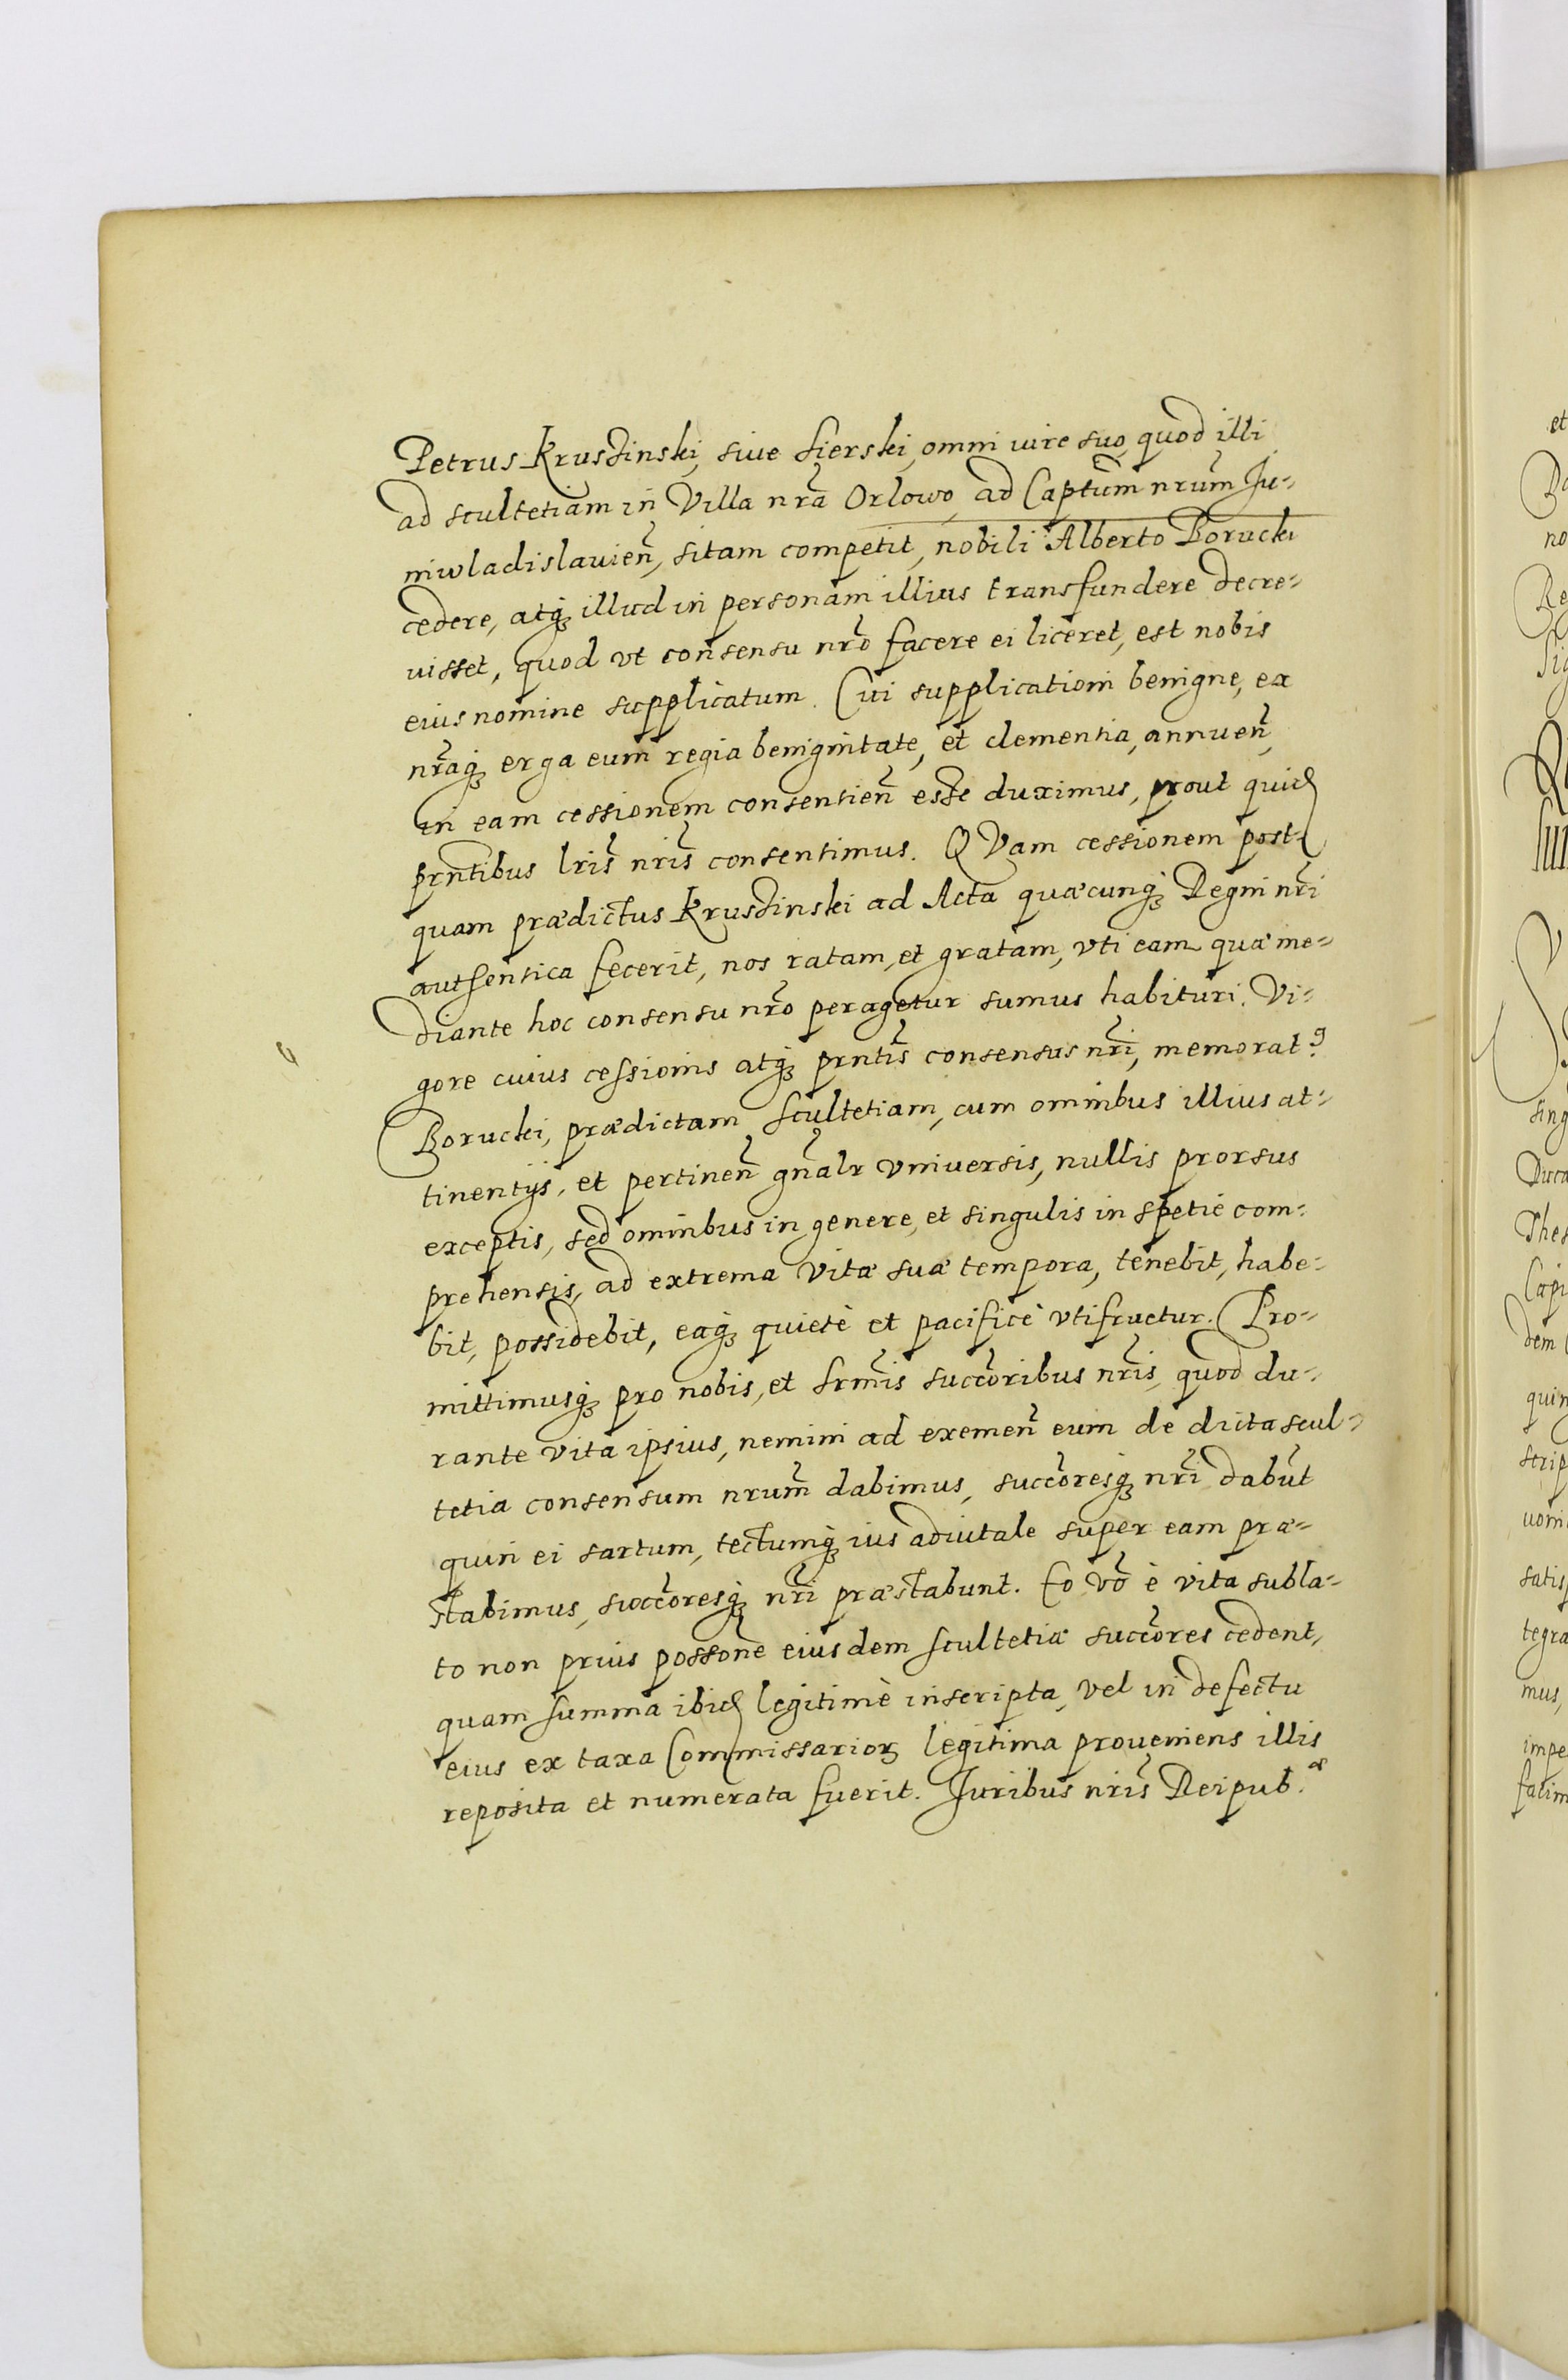 Petrus Kruszinski, siue Sierski, omni iure suo, quod illi
ad scultetiam in Villa nrã Orlowo, ad Captũm nrũm Ju-
niwladislauien̄, sitam competit, nobili Alberto Borucki
cedere, atq3 illud in personam illius transfundere decre-
uisset, quod vt consensu nrõ facere ei liceret, est nobis
eius nomine supplicatum. Cui supplicationi benigne, ex
nrãq3 erga eum regia benignitate, et clementia, annuen̄,
in eam cessionem consentien̄ esse duximus, prout quid
prñtibus lrĩs nrĩs consentimus. QVam cessionem post-
quam prædictus Kruszinski ad Acta quæcunq3 Regni nrĩ
authentica fecerit, nos ratam, et gratam, vti eam quæ me-
diante hoc consensu nrõ peragetur sumus habituri. Vi-
gore cuius cessionis atq3 prñtis consensus nrĩ, memorat9
Borucki, prædictam Scultetiam, cum omnibus illius at-
tinentijs, et pertinen̄ gñalr vniuersis, nullis prorsus
exceptis, sed omnibus in genere, et singulis in spetie com-
prehensis, ad extrema vitæ suæ tempora, tenebit, habe-
bit, possidebit, eaq3 quietè et pacificè vtifruetur. Pro-
mittimusq3 pro nobis, et Srm̃is succõribus nrĩs, quod du-
rante vita ipsius, nemini ad exemen̄ eum de dicta scul-
tetia consensum nrũm dabimus, succõresq3 nrĩ dabũt
quin ei sartum, tectumq3 ius aduitale super eam præ-
stabimus, succõresq3 nrĩ præstabunt. Eo võ è vita subla-
to non prius possone eiusdem scultetiæ succõres cedent,
quam summa ibid legitimè inscripta, vel in defectu
eius ex taxa Commissarioꝝ legitima proueniens illis
reposita et numerata fuerit. Juribus nrĩs Reipub.æ